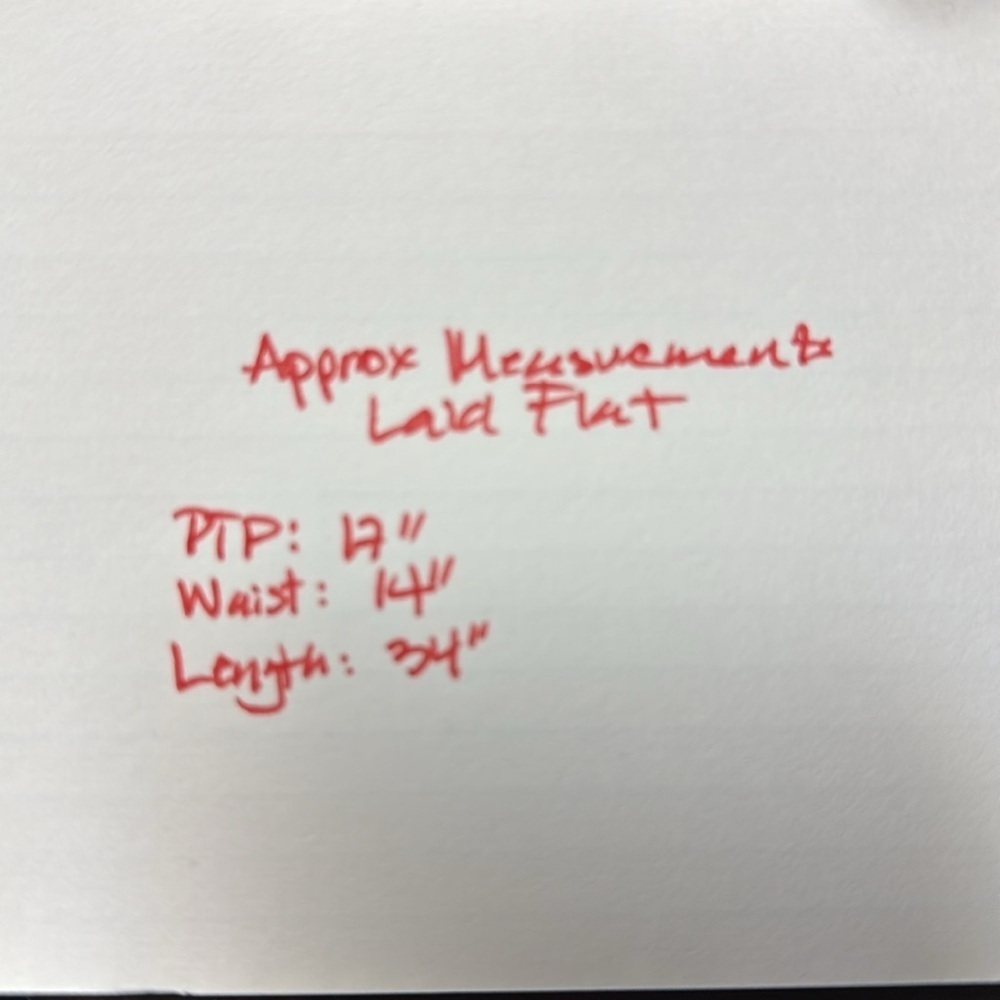 Approx Measurements
Laid Flat
PTP: 17"
Waist: 14"
Length: 34"